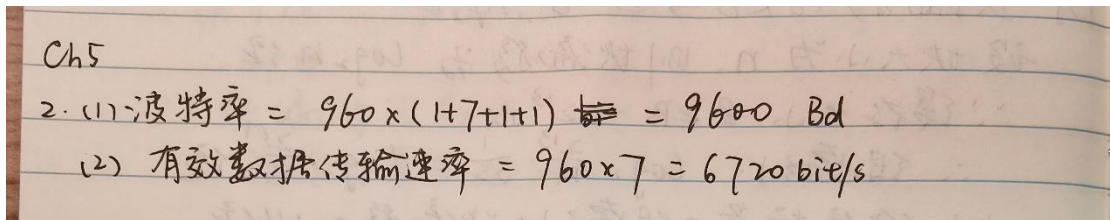 Ch5
2. (1) 波特率 = 960×(1+7+1+1) = 9600 Bd
(2) 有效数据传输速率 = 960×7 = 6720 bit/s